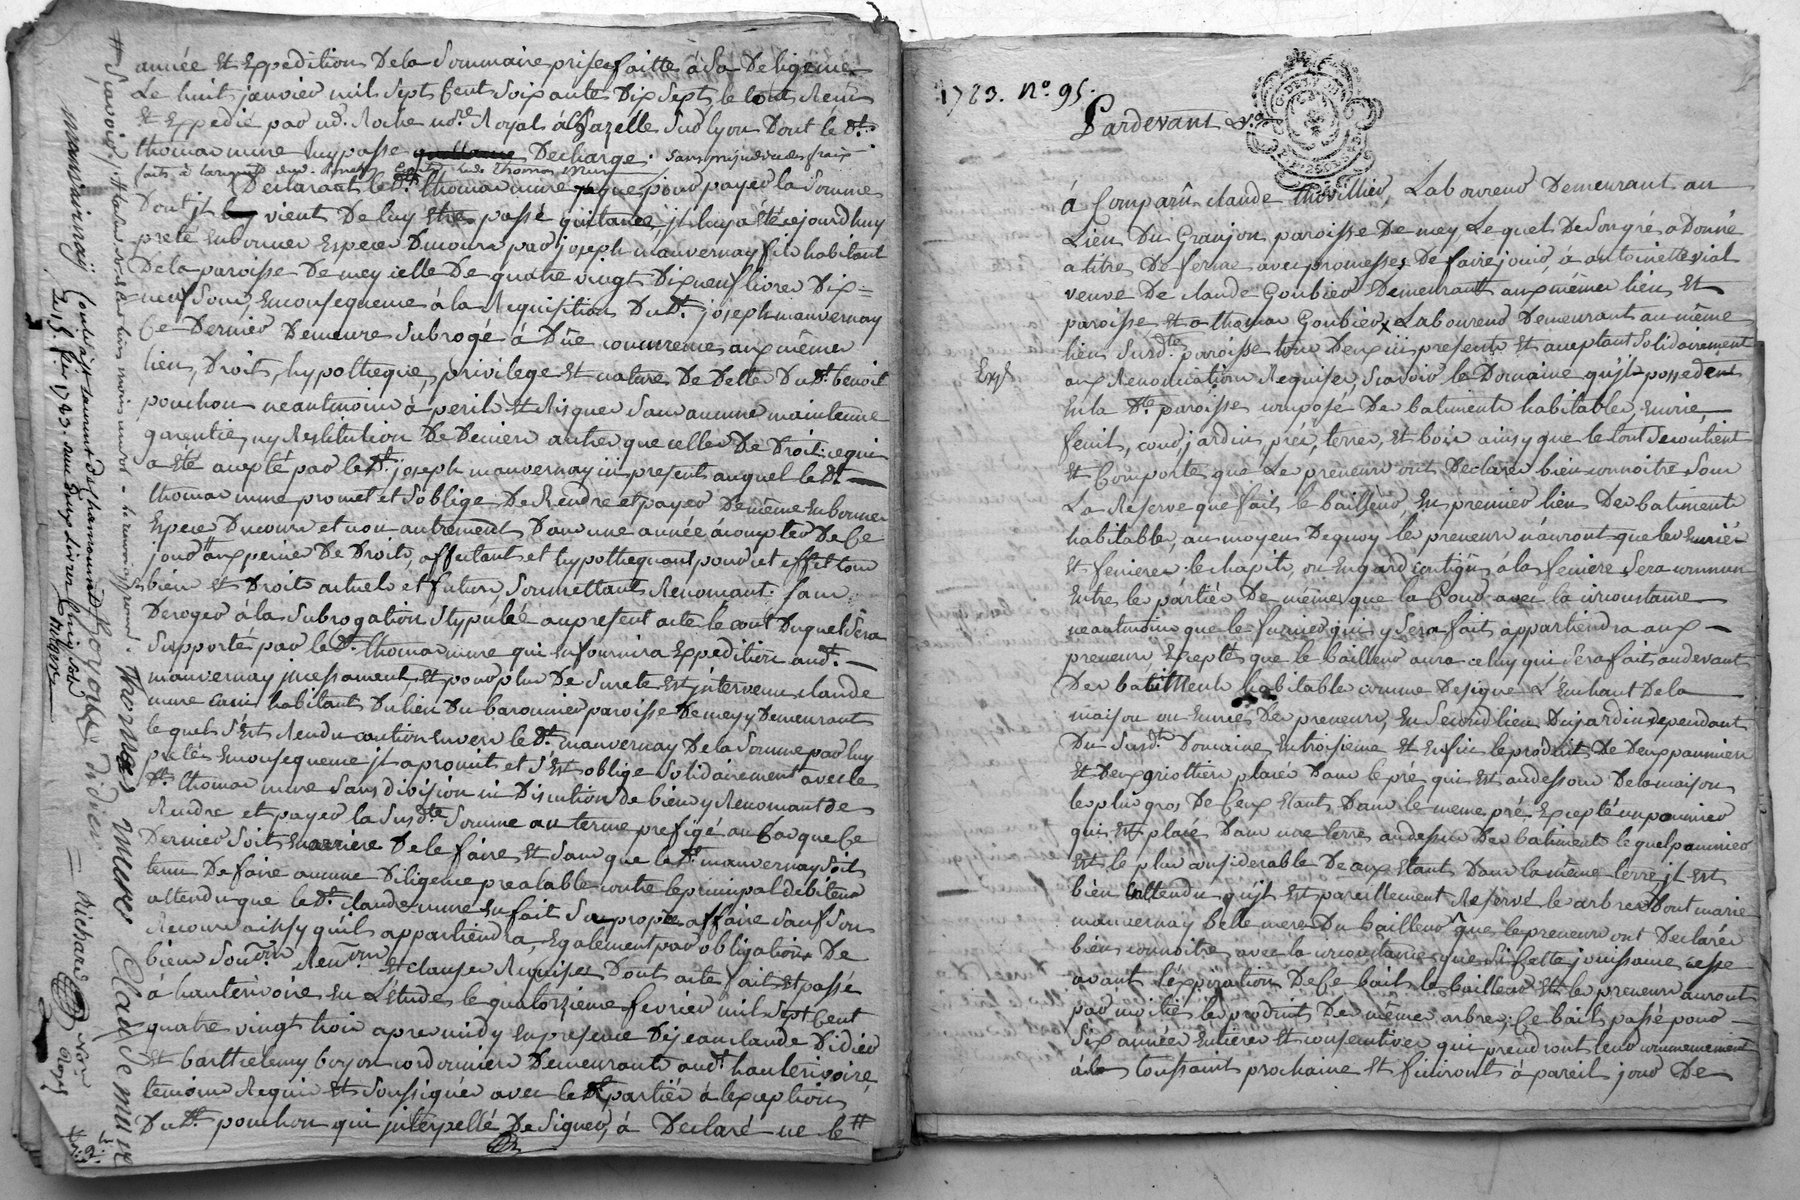 année et Expedition De la Sommaire prise faitte à Sa Deligence
Le huit janvier mil Sept Cent Soixante Dix Sept, le tout Remis
Et Expedié par nd. not.re Royal à Chazelle Sur lyon Dont le dt.
thomas mure luy passe Decharge. Sans prejudice des frais
faits à
Declarant le dt. thomas mure que pour payer la Somme
Dont jl vient De luy Etre passé quitance, jl luy a été cejourdhuy
preté En bonnes Especes Du cours par joseph mauvernay fils habitant
De la paroisse De mey icelle De quatre vingt Dix neuf livres Dix=
neuf Sous, En consequence à la Requisition Du dt. joseph mauvernay
Ce Dernier Demeure Subrogé à Dûe concurrence aux mêmes
lieu, Droits, hypotheque, privilege Et nature De Dette Du dt. benoit
pouchon neantmoins à perils Et Risques Sans aucune maintenue
garentie, ny Restitution De Deniers autres que celles De Droit: ce qui
a été accepté par le dt. joseph mauvernay ici present auquel le dt.
thomas mure promet et S'oblige De Rendre et payer De même En bonnes
Especes Du cours et non autrement Dans une année à compter De Ce
jour aux peines De Droits, affectant et hypothequant pour cet Effet tous
biens et Droits actuels et futurs, Soumettant, Renonçant: Sans
Deroger à la Subrogation Stypulée au present acte le cout Duquel Sera
Supporté par le dt. thomas mure qui En fournira Expedition audt.
mauvernay incessament, Et pour plus De Sureté Est intervenu claude
mure habitant Du lieu Du baronnier paroisse De mey y Demeurant
lequel S'est Rendu caution Envers le dt. mauvernay De la Somme par luy
pretée En consequence jl a promit et S'est obligé Solidairement avec le
dt. thomas mure Sans division ni Discution de biens y Renonçant de
Rendre et payer la Susdte. Somme au terme prefigé au Cas que Ce
Dernier Soit En arriere De le faire Et Sans que le dt. mauvernay Soit
tenu De faire aucune Diligence prealable contre le principal debiteur
attendu que le dt. claude mure En fait Sa propre affaire Sauf Son
Recours ainsy qu'il appartiendra, Egalement par obligations De
biens Et clauses Requises Dont acte fait Et passé
à hauterivoire En L'Etude le quatorzieme fevrier mil Sept Cent
quatre vingt trois après midy En presence De jean claude Didier
Et barthelemy boyon cordonnier Demeurants audt. hauterivoire,
temoins Requis Et Soussignés avec les parties à l'exception
Du dt. pouchon qui interpellé De Signer, à Declaré ne le
mauvernay
Thomas mure Claude mure
Didier
Richard Nore Royal
1783. No. 95.
Pardevant &.a
à Comparû claude thovillier, Laboureur Demeurant au
Lieu Du Granjon paroisse De mey Lequel De Son gré a Donné
a titre De ferme avec promesses De faire jouir, à antoinette vial
veuve De claude Goubier Demeurant aux mêmes lieu Et
paroisse, Et a thomas Goubier Laboureur Demeurant au même
lieu Susdte. paroisse tous Deux ici presents Et acceptant Solidairement
aux Renonciations Requises, Scavoir le Domaine qu'jl possede
En la dte. paroisse composé De batiments habitables, Ecurie,
fenil, cour, jardin, prés, terres, Et bois ainsy que le tout Se contient
Et Comporte, que Les preneurs ont Declaré bien connoitre Sous
La Reserve que fait le bailleur, En premier lieu Des batiments
habitables, au moyen Dequoy les preneurs n'auront que les Ecuries
Et fenieres: le chapit, ou Engard contigû à la feniere Sera commun
Entre les parties De même que la Cour avec la circonstance
neantmoins que le fumier qui y Sera fait appartiendra aux
preneurs, Excepté que le bailleur aura celuy qui Sera fait audevant
Des batiments habitables comme Designé L'Enchant De la
maison ou Ecurie Des preneurs, En Second lieu Du jardin dependant
Du Susdt. Domaine, En troisieme Et Enfin le produit De Deux pommiers
Et Deux griottiers placés Dans le pré qui Est audessous De la maison
les plus gros De Ceux Etants Dans le meme pré, Excepté un pommier
qui Est placé Dans une terre audessus Des batiments lequel pommier
Est le plus considerable De ceux Etant Dans la même terre, jl est
bien Entendu qu'jl Est pareillement Reservé les arbres Dont marie
mauvernay belle mere Du bailleur que les preneurs ont Declarés
bien connoitre avec la circonstance que Si Cette jouissance cesse
avant l'expiration De Ce bail le bailleur Et les preneurs auront
par moitié les produits De mêmes arbres; Ce bail passé pour
Six années Entieres Et consecutives qui prendront leur commencement
à la toussaint prochaine Et finiront à pareil jour De